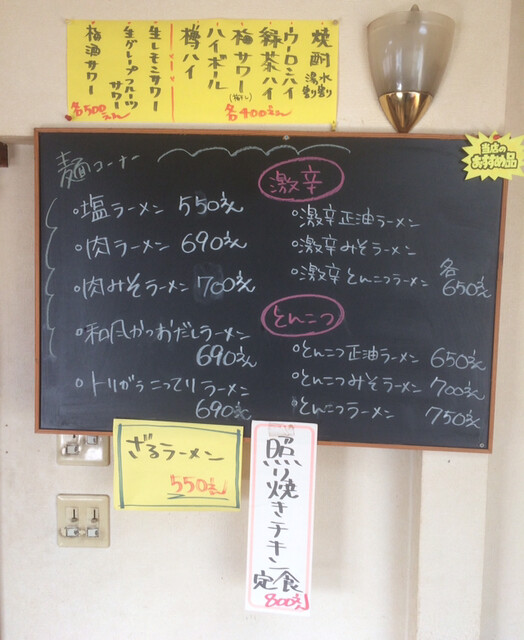 焼酎 水割り 湯割り
ウーロンハイ
緑茶ハイ
梅サワー
ハイボール
樽ハイ
各400えん
生レモンサワー
生グレープフルーツサワー
梅酒サワー
各500えん
当店の
おすすめ品
麺コーナー
塩ラーメン 550えん
肉ラーメン 690えん
肉みそラーメン 700えん
和風かつおだしラーメン
690えん
トリガラこってりラーメン
690えん
激辛
激辛正油ラーメン
激辛みそラーメン
激辛とんこつラーメン 各650えん
とんこつ
とんこつ正油ラーメン 650えん
とんこつみそラーメン 700えん
とんこつラーメン 750えん
ざるラーメン
550えん
照り焼きチキン定食
800えん